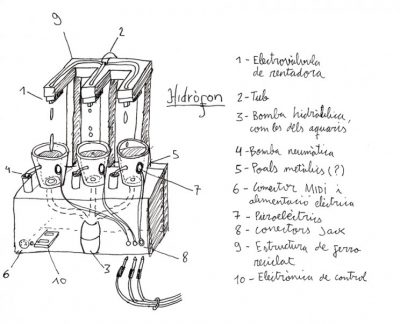 9
2
1
Hidròfon
4
5
7
6
10
3
8
1 - Electrovàlvula
de rentadora
2 - Tub
3 - Bomba hidràulica,
com les dels aquaris
4 - Bomba neumàtica
5 - Poals metàlics (?)
6 Connector MIDI i
alimentació elèctrica
7 Piezoelèctrics
8 - conectors Jack
9 - Estructura de ferro
reciclat
10 - Electrònica de control